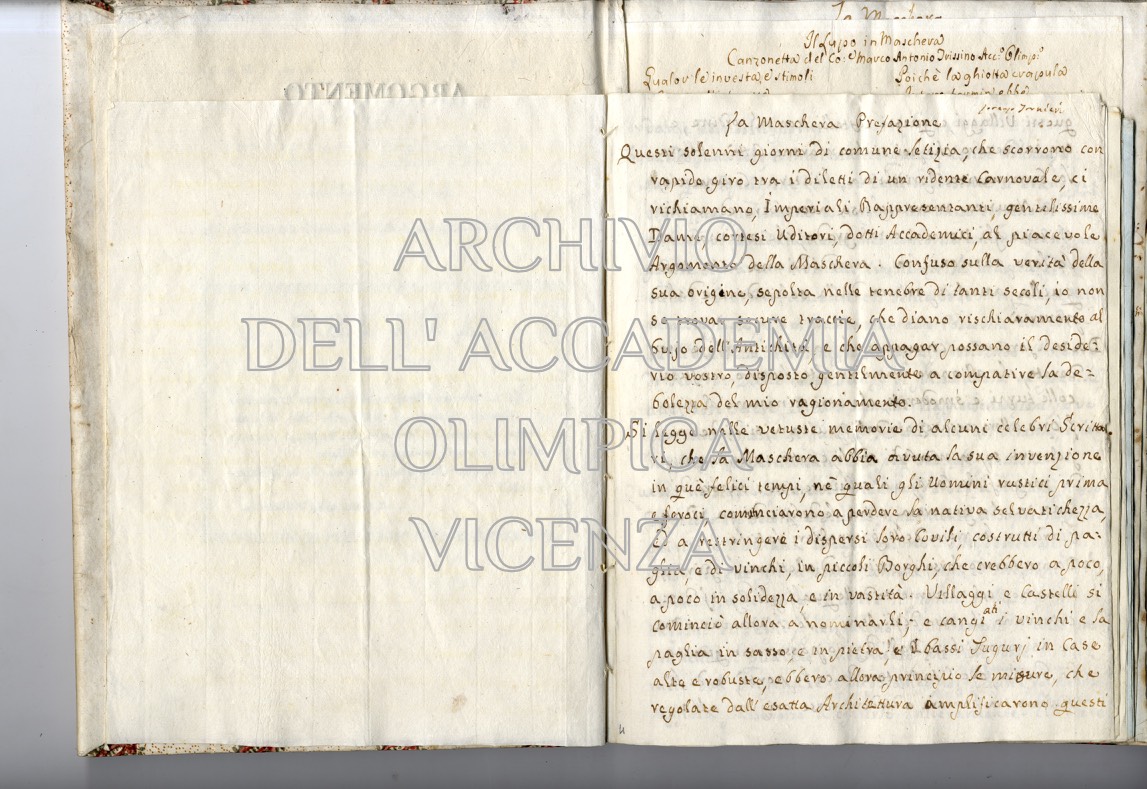 ARGOMENTO
La Maschera
Il Lupo in Maschera
Canzonetta del Co: Marco Antonio Trissino Acc.º Olimp.º
Qualor le investa e stimoli
Poichè la ghiotta crapula
La Maschera Prefazione
Questi solenni giorni di comune letizia, che scorrono con
rapido giro tra i diletti di un ridente Carnovale, ci
richiamano, Imperiali Rappresentanti, gentilissime
Dame, cortesi Uditori, dotti Accademici, al piacevole
Argomento della Maschera. Confuso sulla verità della
sua origine, sepolta nelle tenebre di tanti secoli, io non
so trovar secure traccie, che diano rischiaramento al
bujo dell'Antichità e che appagar possano il deside-
rio vostro, disposto gentilmente a compatire la de-
bolezza del mio ragionamento.
Si legge nelle vetuste memorie di alcuni celebri Scritto
ri, che la Maschera abbia avuta la sua invenzione
in què felici tempi, nè quali gli Uomini rustici prima
e feroci cominciarono a perdere la nativa selvatichezza,
ed a restringere i dispersi loro Covili, costrutti di pa-
glia, e di vinchi, in piccoli Borghi, che crebbero a poco,
a poco in solidezza, e in vastità. Villaggi e Castelli si
cominciò allora a nominarli; e cangiati i vinchi e la
paglia in sasso, e in pietra, e i bassi Tugurj in Case
alte e robuste, ebbero allora principio le misure, che
regolate dall'esatta Architettura amplificarono questi
ARCHIVIO
DELL'ACCADEMIA
OLIMPICA
VICENZA